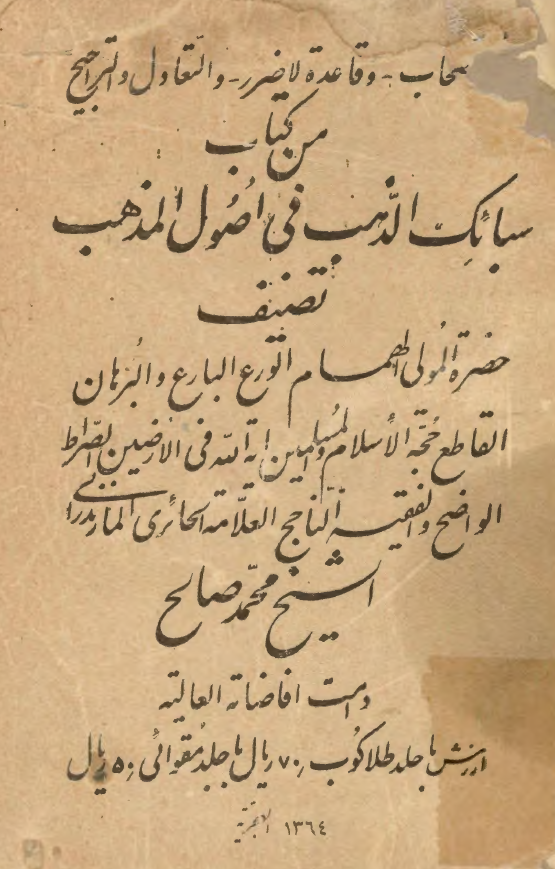 سحاب - وقاعدة لاضرر - والتعادل والتراجيح
من كتاب
سبائك الذّهب فى اُصُول المذهب
تصنيف
حضرة المُولى الهمام الورع البارع والبُرهان
القاطع حُجّة الأسلام والمُسلمين اية الله فى الارضين الصّراط
الواضح والفقيه النّاجح العلّامة الحائرى المازندرانى
الشيخ محمّد صالح
دامت افاضاته العالية
ارزش با جلد طلاكوب ۷۰ ريال با جلد مُقوائى ۵۰ ريال
١٣٦٤ الهجرية